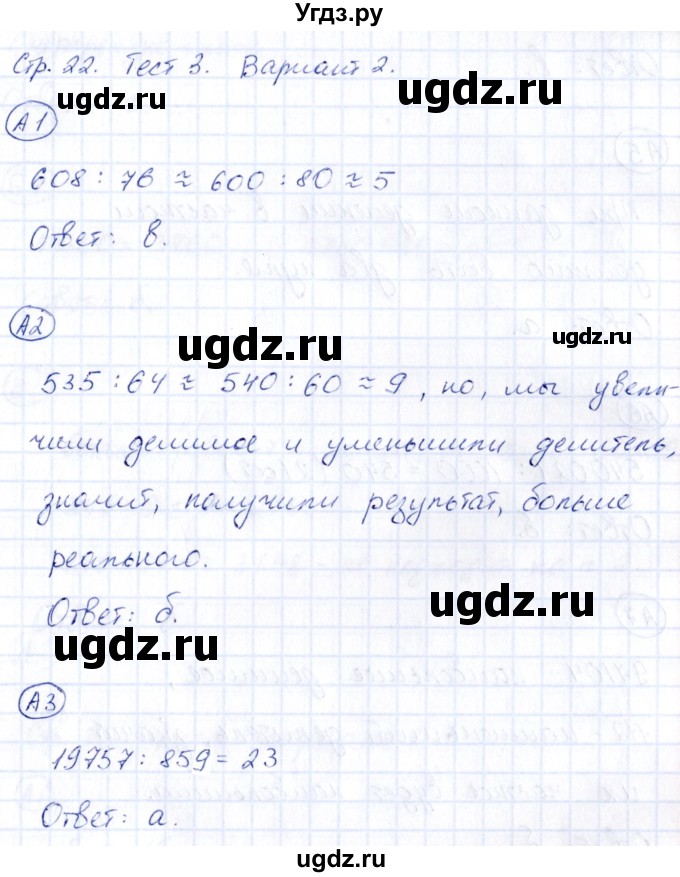 Угдз.ру
Стр. 22. Тест 3. Вариант 2.
ugdz.ru
ugdz.ru
А1
608 : 76 ≈ 600 : 80 ≈ 5
Ответ: в.
ugdz.ru
А2
ugdz.ru
535 : 64 ≈ 540 : 60 ≈ 9, но, мы увели-
чили делимое и уменьшили делитель,
значит, получили результат, больше
реального.
Ответ: б.
ugdz.ru
ugdz.ru
А3
19757 : 859 = 23
Ответ: а.
ugdz.ru